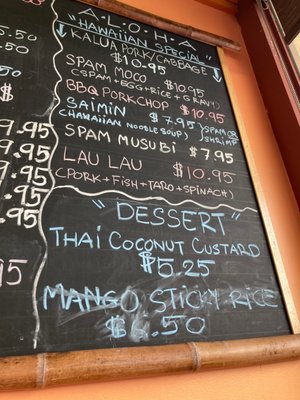 A·L·O·H·A
"HAWAIIAN SPECIAL"
KALUA PORK/CABBAGE
$10.95
SPAM MOCO $10.95
(SPAM+EGG+RICE+GRAVY)
BBQ PORKCHOP $10.95
SAIMIN $7.95 (SPAM OR
(HAWAIIAN NOODLE SOUP) SHRIMP
SPAM MUSUBI $7.95
LAU LAU $10.95
(PORK+FISH+TARO+SPINACH)
"DESSERT"
THAI COCONUT CUSTARD
$5.25
MANGO STICKY RICE
9.95
9.95
9.95
9.95
9.95